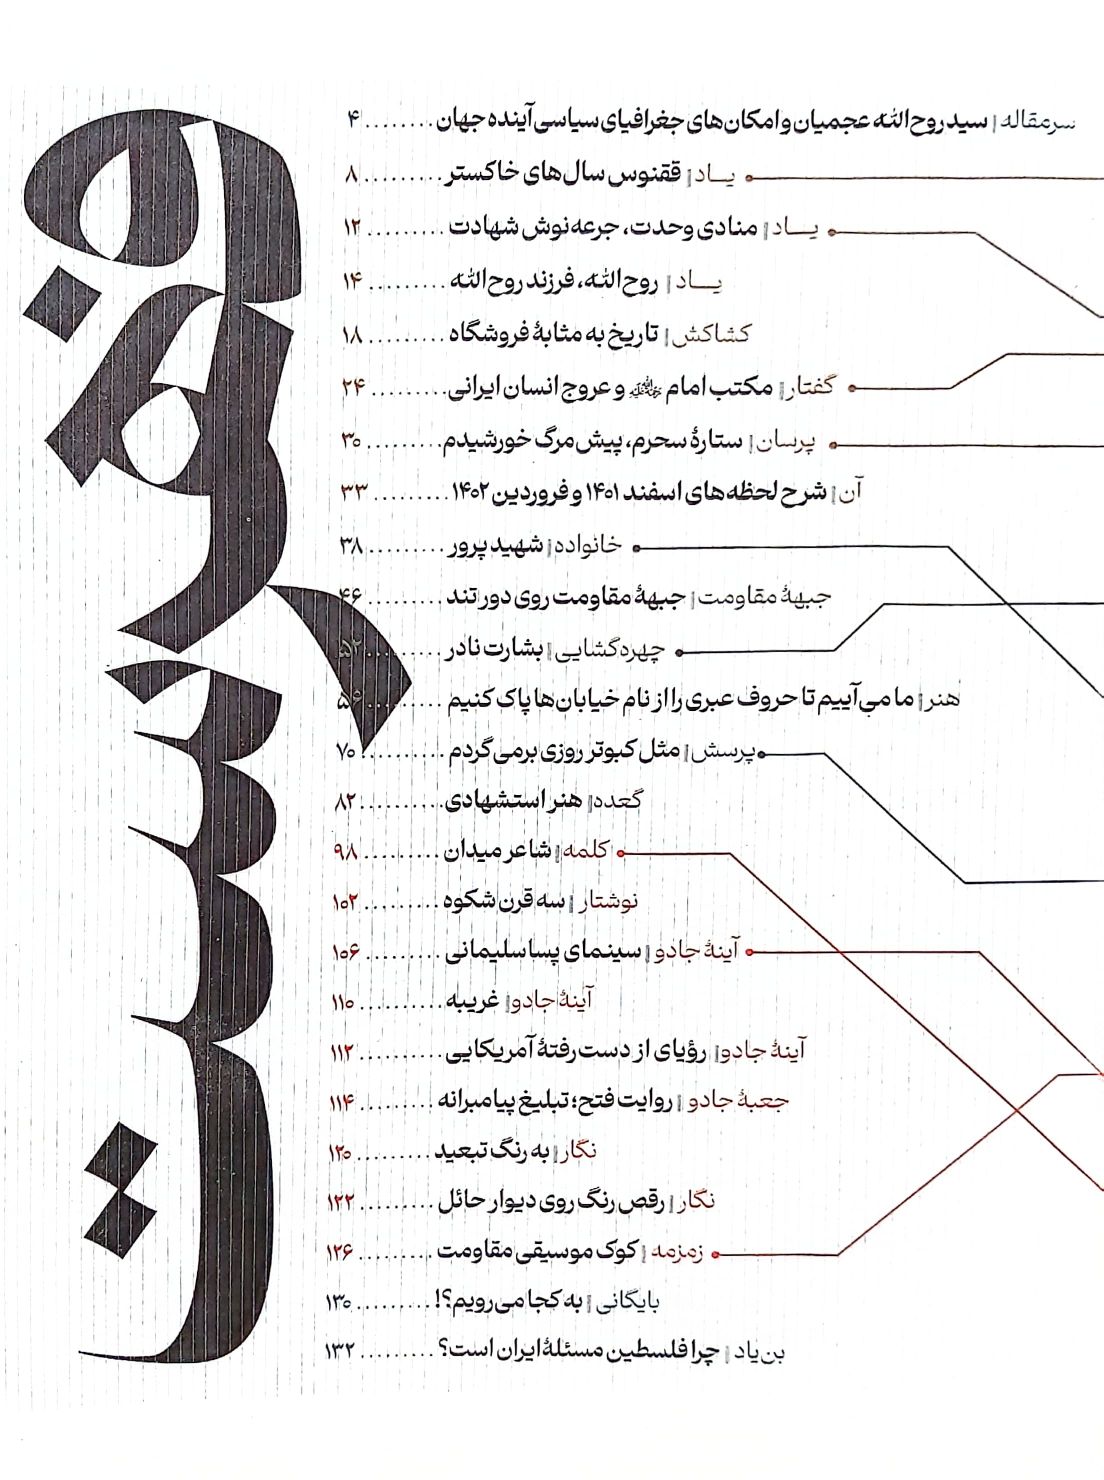 فهرست
سرمقاله | سید روح‌الله عجمیان و امکان‌های جغرافیای سیاسی آینده جهان ........ ۴
یـاد | ققنوس سال‌های خاکستر ........ ۸
یـاد | منادی وحدت، جرعه‌نوش شهادت ........ ۱۲
یـاد | روح‌الله، فرزند روح‌الله ......... ۱۴
کشاکش | تاریخ به مثابهٔ فروشگاه ......... ۱۸
گفتار | مکتب امام و عروج انسان ایرانی ......... ۲۴
پرسان | ستارهٔ سحرم، پیش‌مرگ خورشیدم ......... ۳۰
آن | شرح لحظه‌های اسفند ۱۴۰۱ و فروردین ۱۴۰۲ ......... ۳۳
خانواده | شهیدپرور ......... ۳۸
جبههٔ مقاومت | جبههٔ مقاومت روی دور تند ......... ۴۶
چهره‌گشایی | بشارت نادر ......... ۵۲
هنر | ما می‌آییم تا حروف عبری را از نام خیابان‌ها پاک کنیم ......... ۵۶
پرسش | مثل کبوتر روزی برمی‌گردم ......... ۷۰
گعده | هنر استشهادی ......... ۸۲
کلمه | شاعر میدان ......... ۹۸
نوشتار | سه قرن شکوه ......... ۱۰۲
آینهٔ جادو | سینمای پساسلیمانی ......... ۱۰۶
آینهٔ جادو | غریبه ......... ۱۱۰
آینهٔ جادو | رؤیای از دست رفتهٔ آمریکایی ......... ۱۱۲
جعبهٔ جادو | روایت فتح؛ تبلیغ پیامبرانه ......... ۱۱۴
نگار | به رنگ تبعید ......... ۱۲۰
نگار | رقص رنگ روی دیوار حائل ......... ۱۲۲
زمزمه | کوک موسیقی مقاومت ......... ۱۲۶
بایگانی | به کجا می‌رویم؟! ......... ۱۳۰
بن‌یاد | چرا فلسطین مسئلهٔ ایران است؟ ......... ۱۳۲